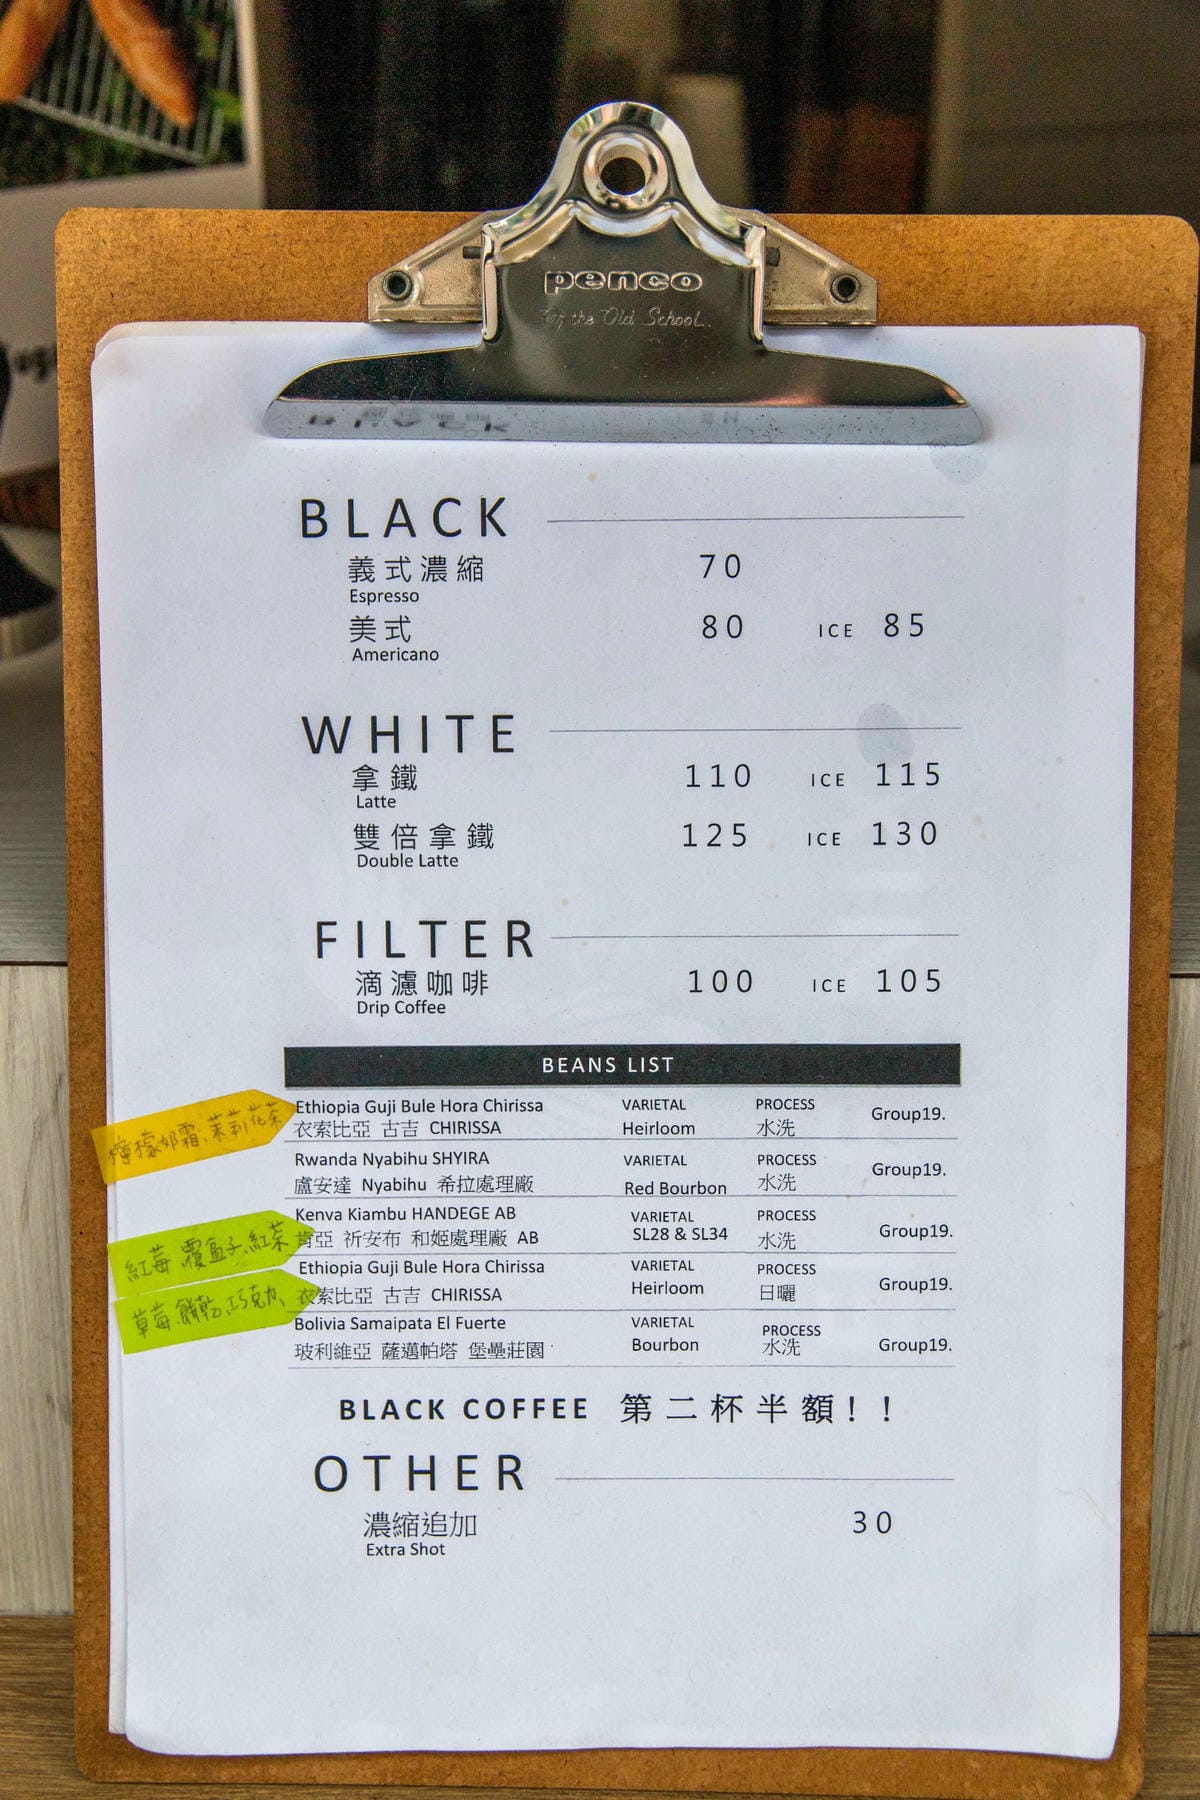 penco
Of the Old School..
BLACK
義式濃縮 70
Espresso
美式 80 ICE 85
Americano
WHITE
拿鐵 110 ICE 115
Latte
雙倍拿鐵 125 ICE 130
Double Latte
FILTER
滴濾咖啡 100 ICE 105
Drip Coffee
BEANS LIST
檸檬奶霜.茉莉花茶
Ethiopia Guji Bule Hora Chirissa VARIETAL PROCESS Group19.
衣索比亞 古吉 CHIRISSA Heirloom 水洗
Rwanda Nyabihu SHYIRA VARIETAL PROCESS Group19.
盧安達 Nyabihu 希拉處理廠 Red Bourbon 水洗
紅莓.覆盆子.紅茶
Kenva Kiambu HANDEGE AB VARIETAL PROCESS Group19.
肯亞 祈安布 和姬處理廠 AB SL28 & SL34 水洗
草莓.餅乾.巧克力
Ethiopia Guji Bule Hora Chirissa VARIETAL PROCESS Group19.
衣索比亞 古吉 CHIRISSA Heirloom 日曬
Bolivia Samaipata El Fuerte VARIETAL PROCESS Group19.
玻利維亞 薩邁帕塔 堡壘莊園 Bourbon 水洗
BLACK COFFEE 第二杯半額!!
OTHER
濃縮追加 30
Extra Shot